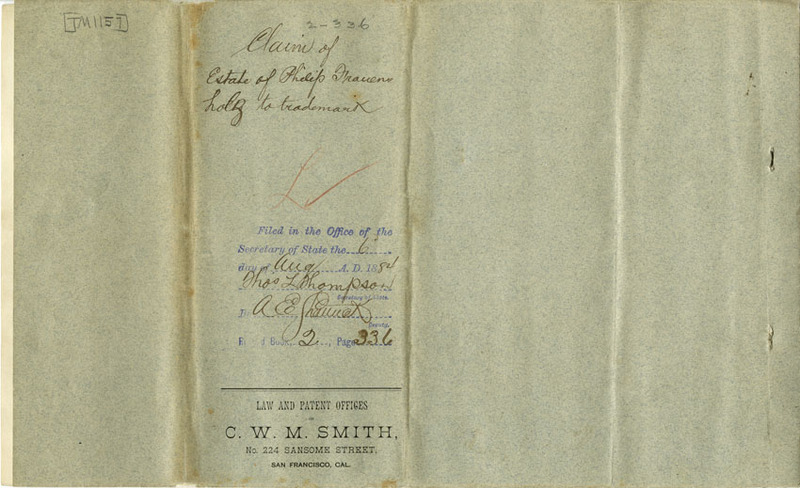 [TM1157]
2-336
Claim of
Estate of Philip Frauen
holtz to trademark
Filed in the Office of the
Secretary of State the 6
day of Aug A. D. 1884
Thos L Thompson
Secretary of State.
By A E
Deputy.
Record Book, 2, Page 336
LAW AND PATENT OFFICES
C. W. M. SMITH,
No. 224 SANSOME STREET,
SAN FRANCISCO, CAL.